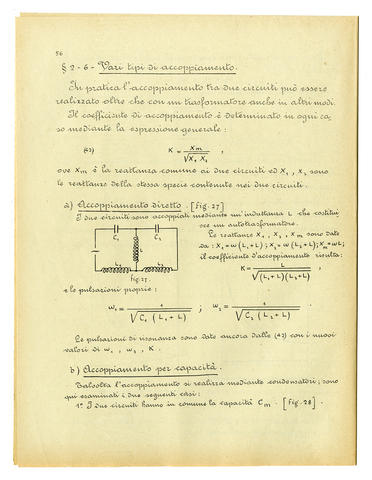 56
§ 2-6 - Vari tipi di accoppiamento.
In pratica l'accoppiamento tra due circuiti può essere
realizzato oltre che con un trasformatore anche in altri modi.
Il coefficiente di accoppiamento è determinato in ogni ca,
so mediante la espressione generale:
K = Xm / √X₁ X₂ ,
ove Xm è la reattanza comune ai due circuiti ed X₁, X₂ sono
le reattanze della stessa specie contenute nei due circuiti.
a) Accoppiamento diretto. [Fig. 27]
I due circuiti sono accoppiati mediante un'induttanza L che costitui
sce un autotrasformatore.
Le reattanze X₁, X₂, Xm sono date
da: X₁=ω(L₁+L); X₂=ω(L₂+L); Xm=ωL;
il coefficiente d'accoppiamento risulta:
K = L / √(L₁+L)(L₂+L) ,
C₁ C₂
L
L₁ L₂
Fig. 27.
e le pulsazioni proprie:
ω₁ = 1 / √C₁ (L₁+L) ; ω₂ = 1 / √C₂ (L₂+L) .
Le pulsazioni di risonanza sono date ancora dalle (42) con i nuovi
valori di ω₁, ω₂, K.
b) Accoppiamento per capacità.
Talvolta l'accoppiamento si realizza mediante condensatori; sono
qui esaminati i due seguenti casi:
1° I due circuiti hanno in comune la capacità Cm. [Fig. 28].